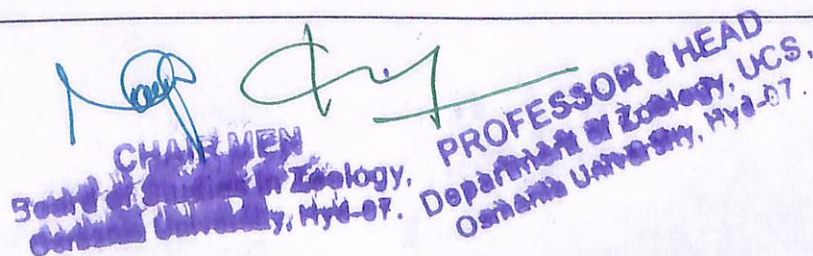 CHAIRMEN
Board of Studies in Zoology,
Osmania University, Hyd-07.
PROFESSOR & HEAD
Department of Zoology, UCS,
Osmania University, Hyd-07.